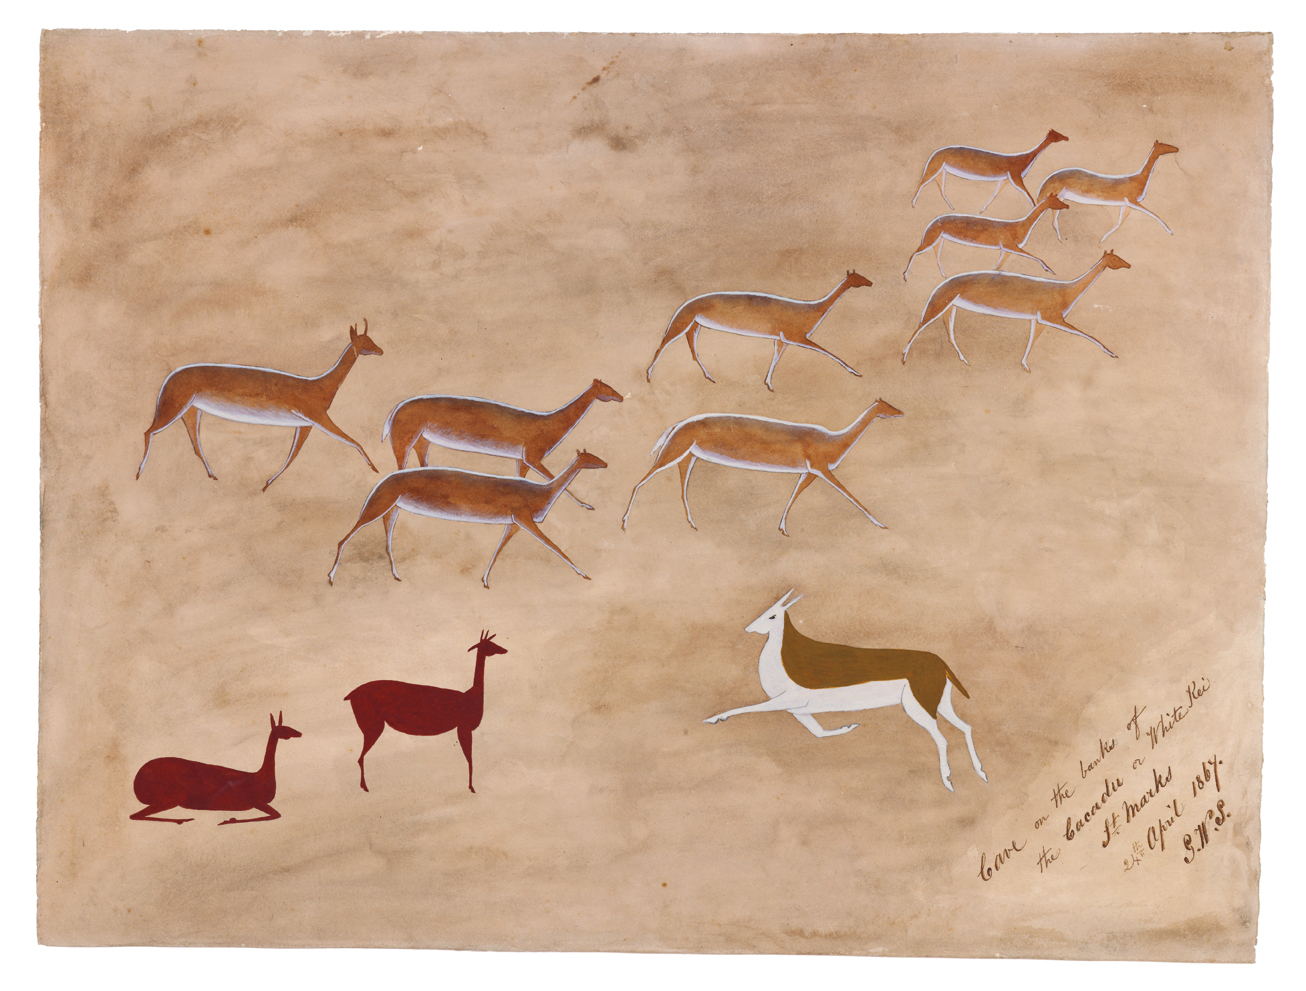 Cave on the banks of
the Cacadu or White Kei
St Marks
24th April 1867.
G.W.S.